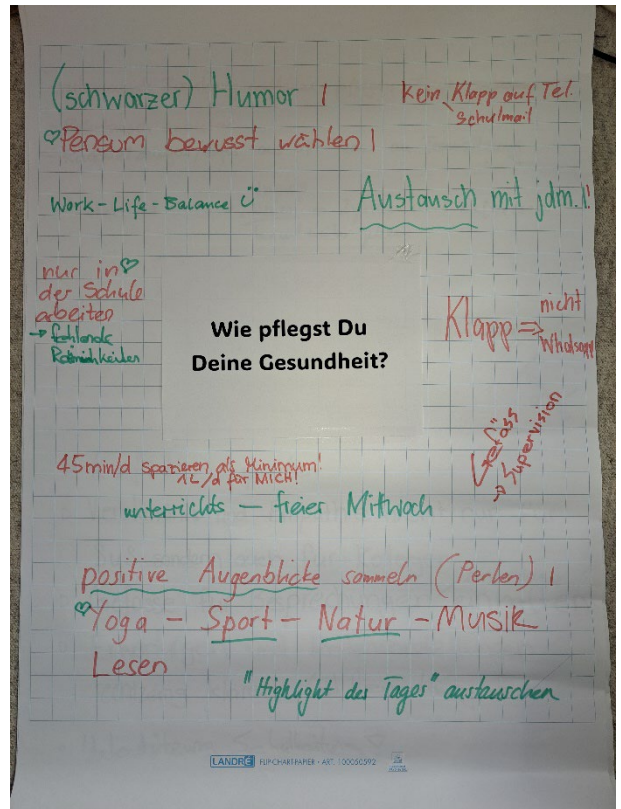 (schwarzer) Humor !
kein Klapp auf Tel.
Schulmail
♡Pensum bewusst wählen !
Work-Life-Balance ☺
Austausch mit jdm.!!
nur in ♡
der Schule
arbeiten
→ fehlende
Räumlichkeiten
Wie pflegst Du
Deine Gesundheit?
Klapp ⇒ nicht
Whatsapp
→ Supervision
45min/d spazieren, als Minimum!
1L/d für MICH!
unterrichts – freier Mittwoch
positive Augenblicke sammeln (Perlen) !
♡Yoga – Sport – Natur – Musik
Lesen
"Highlight des Tages" austauschen
LANDRÉ FLIPCHARTPAPIER • ART. 100050592